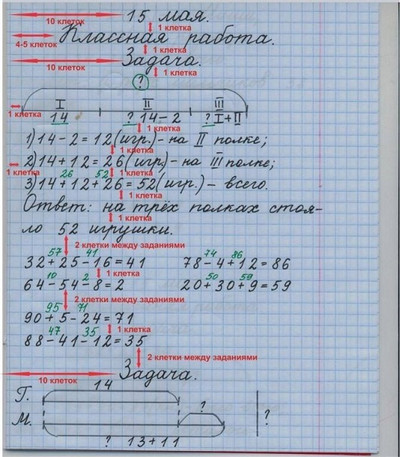 15 мая.
10 клеток
1 клетка
Классная работа.
4-5 клеток
1 клетка
Задача.
10 клеток
1 клетка
?
I II III
14 ? 14-2 ? I+II
1 клетка
1 клетка
1) 14-2=12(игр.)- на II полке;
1 клетка
2) 14+12=26(игр.)- на III полке;
1 клетка
1 клетка
26 52
3) 14+12+26=52(игр.)- всего.
1 клетка
Ответ: на трёх полках стоя-
1 клетка
ло 52 игрушки.
2 клетки между заданиями
57 41 74 86
32+25-16=41 78-4+12=86
1 клетка
10 2 50 59
64-54-8=2 20+30+9=59
2 клетки между заданиями
95 71
90+5-24=71
1 клетка
47 35
88-41-12=35
2 клетки между заданиями
Задача.
10 клеток
14
Г.
?
М.
?
? 13+11